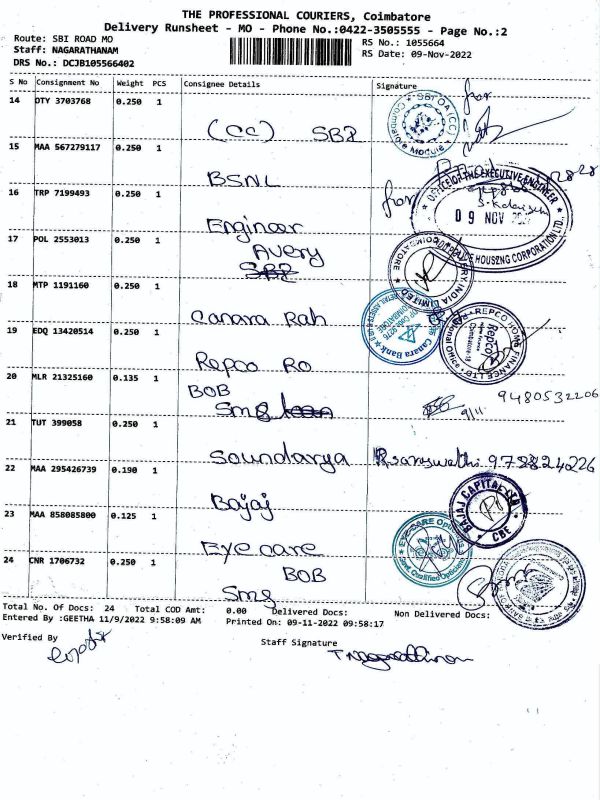 THE PROFESSIONAL COURIERS, Coimbatore
Delivery Runsheet - MO - Phone No.:0422-3505555 - Page No.:2
Route: SBI ROAD MO
RS No.: 1055664
Staff: NAGARATHANAM
RS Date: 09-Nov-2022
DRS No.: DCJB105566402
S No Consignment No Weight PCS Consignee Details Signature
14 DTY 3703768 0.250 1
(CC) SBI
15 MAA 567279117 0.250 1
BSNL
16 TRP 7199493 0.250 1
Engineer
OFFICE OF THE EXECUTIVE ENGINEER
09 NOV
HOUSING CORPORATION LTD
17 POL 2553013 0.250 1
Avery
COIMBATORE
INDIA LIMITED
18 MTP 1191160 0.250 1
Canara Rah
Canara Bank
19 EDQ 13420514 0.250 1
Repco RO
REPCO HOME FINANCE LTD
20 MLR 21325160 0.135 1
BOB
Smg
9/11
9480532206
21 TUT 399058 0.250 1
Soundarya
22 MAA 295426739 0.190 1
Bajaj
BAJAJ CAPITAL LTD
CBE
23 MAA 858085800 0.125 1
Eye care
EYE-CARE Opticals
Govt. Certified Opticians
24 CNR 1706732 0.250 1
BOB
Smg
Total No. Of Docs: 24 Total COD Amt: 0.00 Delivered Docs: Non Delivered Docs:
Entered By :GEETHA 11/9/2022 9:58:09 AM Printed On: 09-11-2022 09:58:17
Verified By
Staff Signature